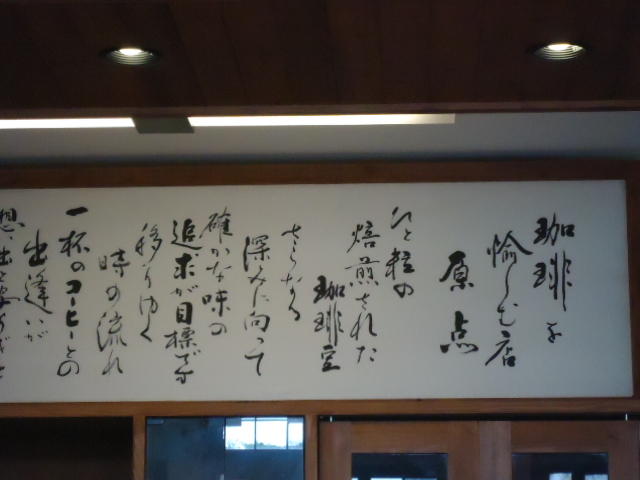 珈琲を
愉しむ店
原点
ひと粒の
焙煎された
珈琲豆
さらなる
深みに向って
確かな味の
追求が目標です
移りゆく
時の流れ
一杯のコーヒーとの
出逢いが
想い出と